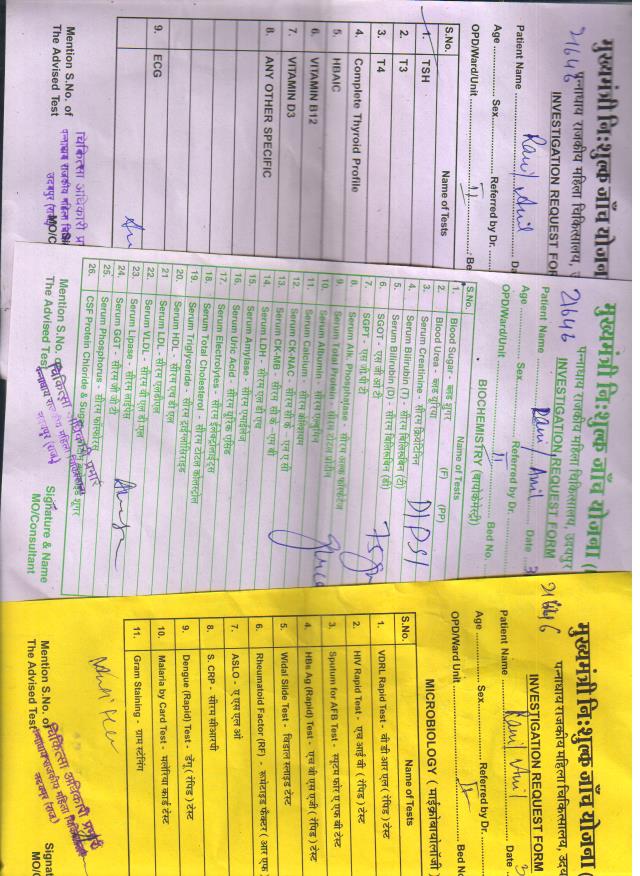 मुख्यमंत्री नि:शुल्क जाँच योजना
पन्नाधाय राजकीय महिला चिकित्सालय,
INVESTIGATION REQUEST FOR
21646
Patient Name
Age Sex Referred by Dr.
OPD/Ward/Unit II Be
S.No. Name of Tests
1. TSH
2. T3
3. T4
4. Complete Thyroid Profile
5. HBAIC
6. VITAMIN B12
7. VITAMIN D3
8. ANY OTHER SPECIFIC
9. ECG
Mention S.No. of
The Advised Test
चिकित्सा अधिकारी
पन्नाधाय राजकीय महिला
उदयपुर (राज.)
MO/C
मुख्यमंत्री नि:शुल्क जाँच योजना (
पन्नाधाय राजकीय महिला चिकित्सालय, उदयपुर
INVESTIGATION REQUEST FORM
21646
Patient Name Date
Age Sex. Referred by Dr.
OPD/Ward/Unit II Bed No.
BIOCHEMISTRY (बायोकेमेस्ट्री)
S.No. Name of Tests
1. Blood Sugar - ब्लड शुगर (F) (PP)
2. Blood Urea - ब्लड यूरिया
3. Serum Creatinine - सीरम क्रियेटिनिन
4. Serum Bilirubin (T) - सीरम बिलिरूबिन (टी)
5. Serum Bilirubin (D) - सीरम बिलिरूबिन (डी)
6. SGOT - एस जी ओ टी
7. SGPT - एस जी पी टी
8. Serum Alk. Phosphatase - सीरम अल्क फॉस्फेटेज
9. Serum Total Protein - सीरम टोटल प्रोटीन
10. Serum Albumin - सीरम एल्बुमिन
11. Serum Calcium - सीरम कैल्शियम
12. CK-NAC - सीरम सी के - एन ए सी
13. CK-MB - सीरम सी के - एम बी
14. Serum LDH - सीरम एल डी एच
15. Serum Amylase - सीरम एमाईलेज
16. Serum Uric Acid - सीरम यूरिक एसिड
17. Serum Electrolytes - सीरम इलेक्ट्रोलाईट्स
18. Serum Total Cholesterol - सीरम टोटल कोलस्ट्रोल
19. Serum Triglyceride - सीरम ट्राइग्लिसिराइड
20. Serum HDL - सीरम एच डी एल
21. Serum LDL - सीरम एलडीएल
22. Serum VLDL - सीरम वी एल डी एल
23. Serum Lipase - सीरम लाईपेज
24. Serum GGT - सीरम जी जी टी
25. Serum Phosphorus - सीरम फॉस्फोरस
26. CSF Protein Chloride & Sugar
DIPSI
75
Mention S.No. of
The Advised Test
Signature & Name
MO/Consultant
मुख्यमंत्री नि:शुल्क जाँच योजना (
पन्नाधाय राजकीय महिला चिकित्सालय, उदय
INVESTIGATION REQUEST FORM
Patient Name Date
Age Sex Referred by Dr.
OPD/Ward/Unit II Bed No
MICROBIOLOGY ( माईक्रोबायोलॉजी )
S.No. Name of Tests
1. VDRL Rapid Test - वी डी आर एल ( रेपिड ) टेस्ट
2. HIV Rapid Test - एच आई वी ( रेपिड ) टेस्ट
3. Sputum for AFB Test - स्पुटम फोर ए एफ बी टेस्ट
4. HBs Ag (Rapid) Test - एच बी एस एजी ( रेपिड ) टेस्ट
5. Widal Slide Test - विडाल स्लाइड टेस्ट
6. Rheumatoid Factor (RF) - रूमेटाइड फैक्टर ( आर एफ )
7. ASLO - ए एस एल ओ
8. S. CRP - सीरम सीआरपी
9. Dengue (Rapid) Test - डेंगू ( रेपिड ) टेस्ट
10. Malaria by Card Test - मलेरिया कार्ड टेस्ट
11. Gram Staining - ग्राम स्टेनिंग
Mention S.No. of
The Advised Test
चिकित्सा अधिकारी प्रभारी
Signat
MO/C